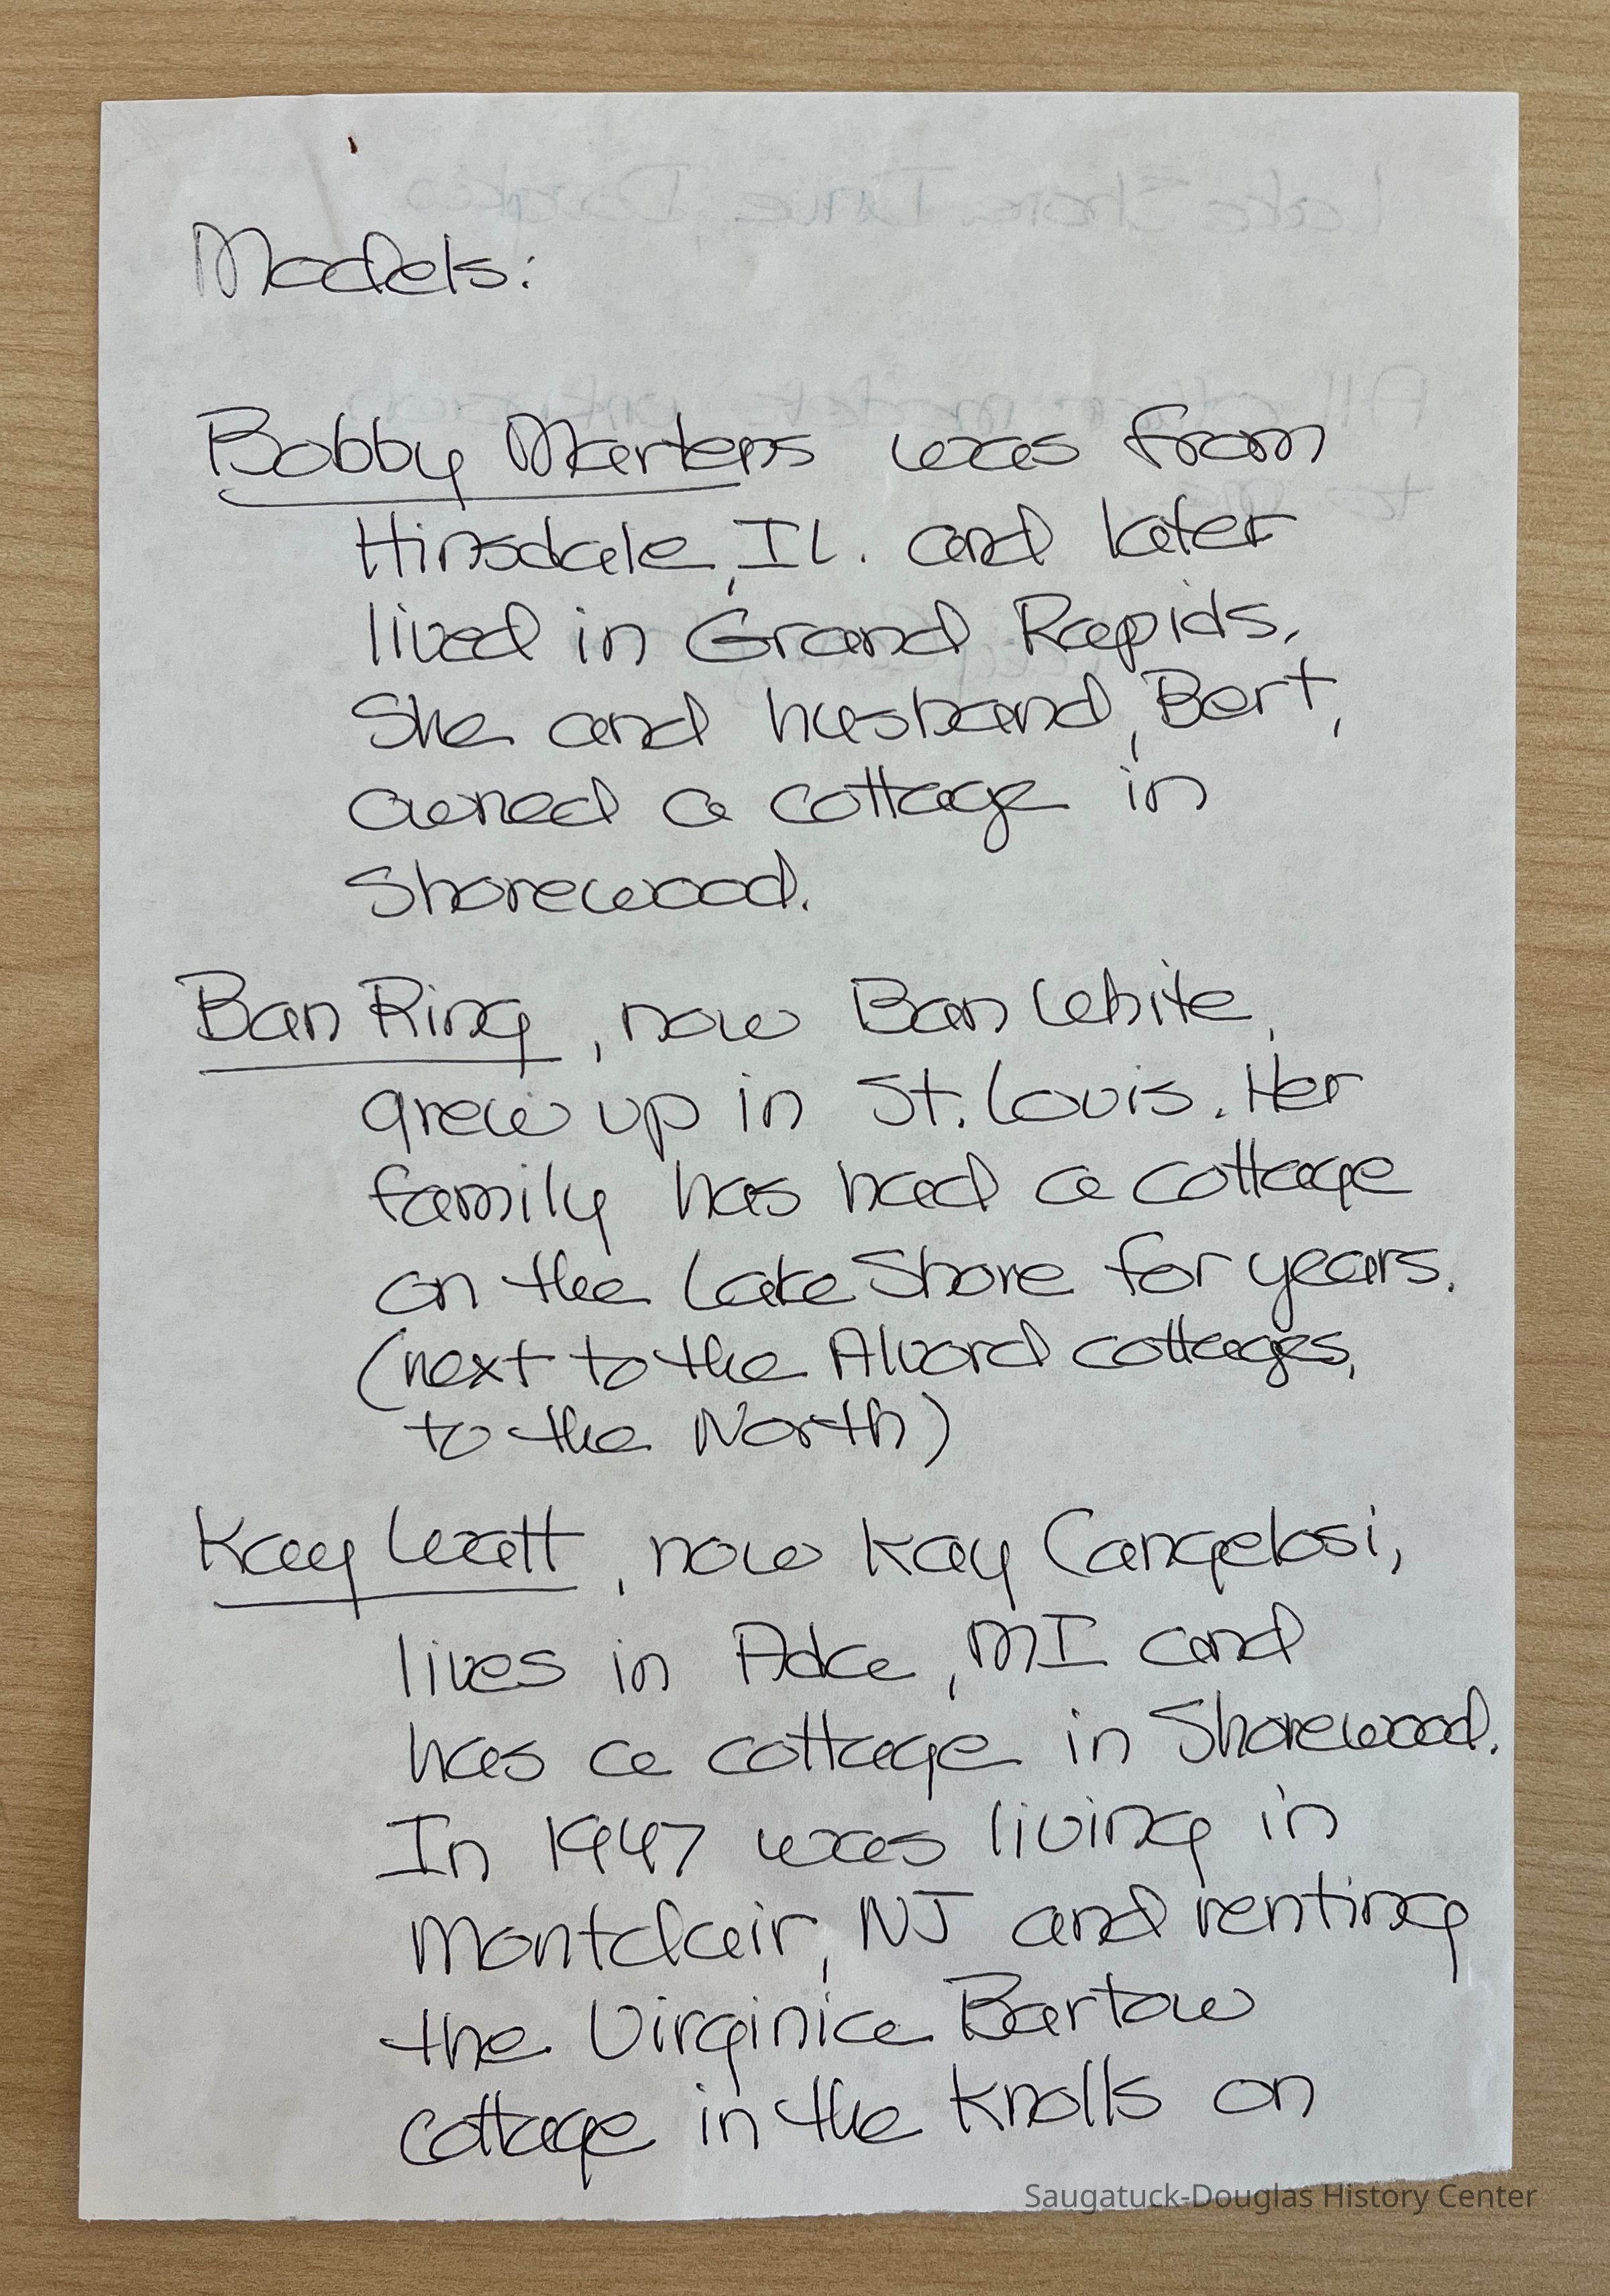 Models:
Bobby Martens was from
Hinsdale, IL. and later
lived in Grand Rapids.
She and husband, Bert,
owned a cottage in
Shorewood.
Ban Ring, now Ban White,
grew up in St. Louis. Her
family has had a cottage
on the Lake Shore for years.
(next to the Alvord cottages,
to the North)
Kay Watt, now Kay Cangelosi,
lives in Ada, MI and
has a cottage in Shorewood.
In 1947 was living in
Montclair, NJ and renting
the Virginia Bartow
cottage in the Knolls on
Saugatuck-Douglas History Center